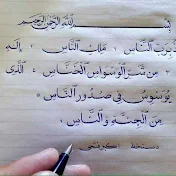 بسم الله الرحمن الرحيم
برب الناس ملك الناس إله
من شر الوسواس الخناس الذى
يوسوس في صدور الناس
من الجنة والناس
دستخط